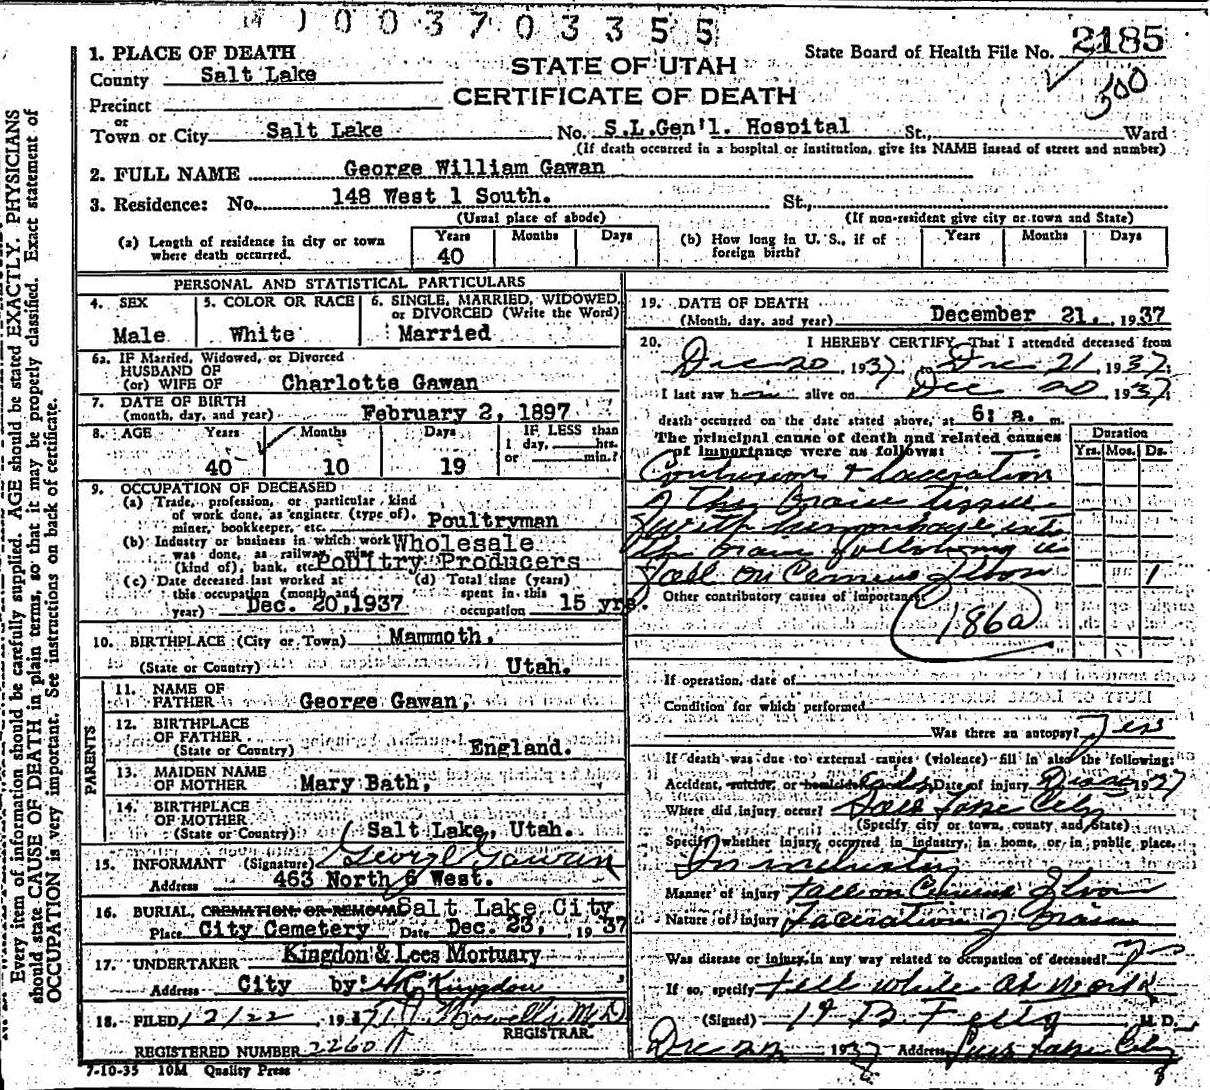 10037033 55
2185
500
State Board of Health File No.
STATE OF UTAH
CERTIFICATE OF DEATH
1. PLACE OF DEATH
County Salt Lake
Precinct
or
Town or City Salt Lake No. S.L.Gen'l. Hospital St., Ward
(If death occurred in a hospital or institution, give its NAME instead of street and number)
2. FULL NAME George William Gawan
3. Residence: No. 148 West 1 South. St.,
(Usual place of abode) (If non-resident give city or town and State)
(a) Length of residence in city or town where death occurred. Years 40 Months Days
(b) How long in U. S., if of foreign birth? Years Months Days
PERSONAL AND STATISTICAL PARTICULARS
4. SEX Male
5. COLOR OR RACE White
6. SINGLE, MARRIED, WIDOWED, or DIVORCED (Write the Word) Married
6a. IF Married, Widowed, or Divorced
HUSBAND OF
(or) WIFE OF Charlotte Gawan
7. DATE OF BIRTH
(month, day, and year) February 2, 1897
8. AGE Years Months Days IF LESS than
1 day, hrs.
or min.?
40 10 19
9. OCCUPATION OF DECEASED
(a) Trade, profession, or particular kind
of work done, as engineer (type of),
miner, bookkeeper, etc. Poultryman
(b) Industry or business in which work
was done, as railway, mine
(kind of), bank, etc. Wholesale
Poultry Producers
(c) Date deceased last worked at
this occupation (month and
year) Dec. 20,1937
(d) Total time (years)
spent in this
occupation 15 yrs.
10. BIRTHPLACE (City or Town) Mammoth,
(State or Country) Utah.
PARENTS
11. NAME OF
FATHER George Gawan,
12. BIRTHPLACE
OF FATHER
(State or Country) England.
13. MAIDEN NAME
OF MOTHER Mary Bath,
14. BIRTHPLACE
OF MOTHER
(State or Country) Salt Lake, Utah.
15. INFORMANT (Signature) George Gawan
Address 463 North 6 West.
16. BURIAL, CREMATION OR REMOVAL Salt Lake City
Place City Cemetery Date Dec. 23, 1937
17. UNDERTAKER Kingdon & Lees Mortuary
Address City by: Kingdon
18. FILED 12/22 1937 Howells M.D
REGISTRAR
REGISTERED NUMBER 2260
7-10-35 10M Quality Press
19. DATE OF DEATH
(Month, day, and year) December 21, 1937
20. I HEREBY CERTIFY, That I attended deceased from
Dec 20, 1937, to Dec 21 1937.
I last saw him alive on Dec 20 1937
death occurred on the date stated above, at 6: a. m.
The principal cause of death and related causes
of importance were as follows:
Duration
Yrs. Mos. Ds.
Contusion & Laceration
of the Brain tissue
with hemorrhage into
the brain following a
fall on Cement floor 1
Other contributory causes of importance:
186a
If operation, date of
Condition for which performed
Was there an autopsy? Yes
If death was due to external causes (violence) fill in also the following:
Accident, suicide, or homicide? Date of injury Dec 20 1937
Where did injury occur? Salt Lake City
(Specify city or town, county and State)
Specify whether injury occurred in industry, in home, or in public place.
In industry
Manner of injury fall on Cement floor
Nature of injury Laceration of Brain
Was disease or injury in any way related to occupation of deceased? yes
If so, specify fell while at work
(Signed) M. D.
Dec 22 1937 Address Salt Lake City
Every item of information should be carefully supplied. AGE should be stated EXACTLY. PHYSICIANS
should state CAUSE OF DEATH in plain terms, so that it may be properly classified. Exact statement of
OCCUPATION is very important. See instructions on back of certificate.